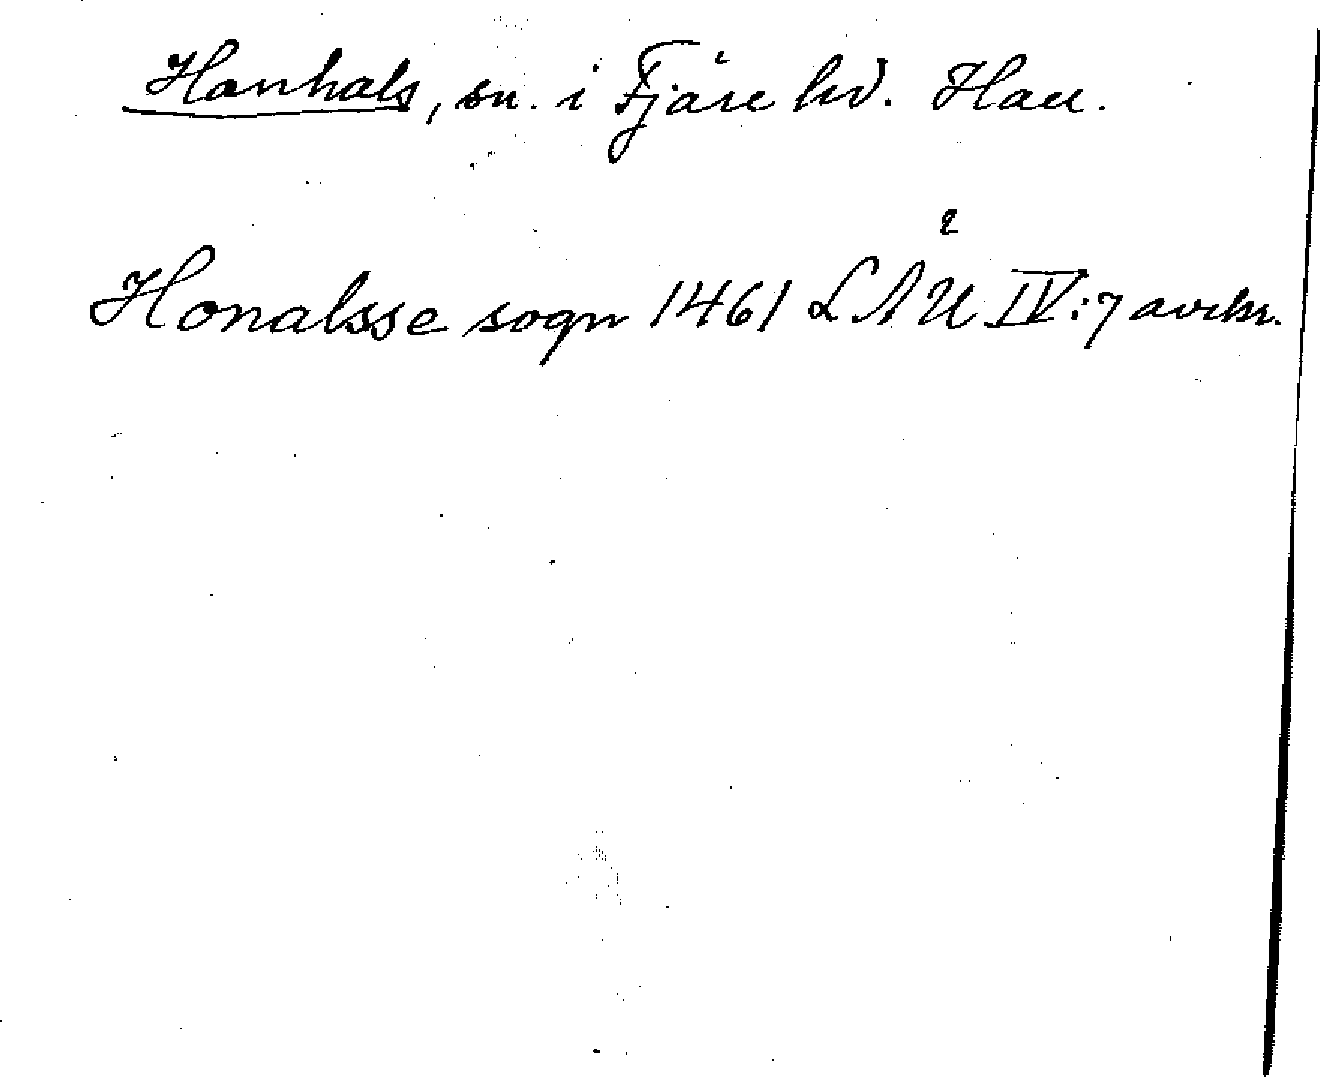 Hanhals, sn. i Fjäre hd. Hall.
Honalsse sogn 1461 LAU² IV:7 avskr.